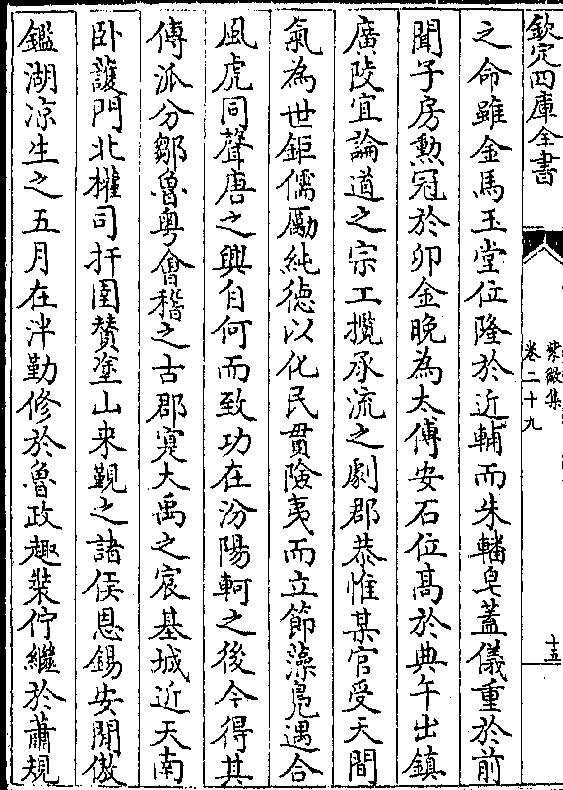 欽定四庫全書
紫薇集
卷二十九
十五
之命雖金馬玉堂位隆於近輔而朱轓皂蓋儀重於前
聞子房勲冠於卯金晚為太傅安石位髙於典午出鎮
廣陵宜論道之宗工攬承流之劇郡恭惟某官受天間
氣為世鉅儒勵純德以化民貫險夷而立節藻鳬遇合
風虎同聲唐之興自何而致功在汾陽軻之後今得其
傳派分鄒魯粤㑹稽之古郡寔大禹之宸基城近天南
卧護門北權司扞圉賛塗山来覲之諸侯恩錫安閒傲
鑑湖凉生之五月在泮勤修於魯政趣裝佇繼於蕭規